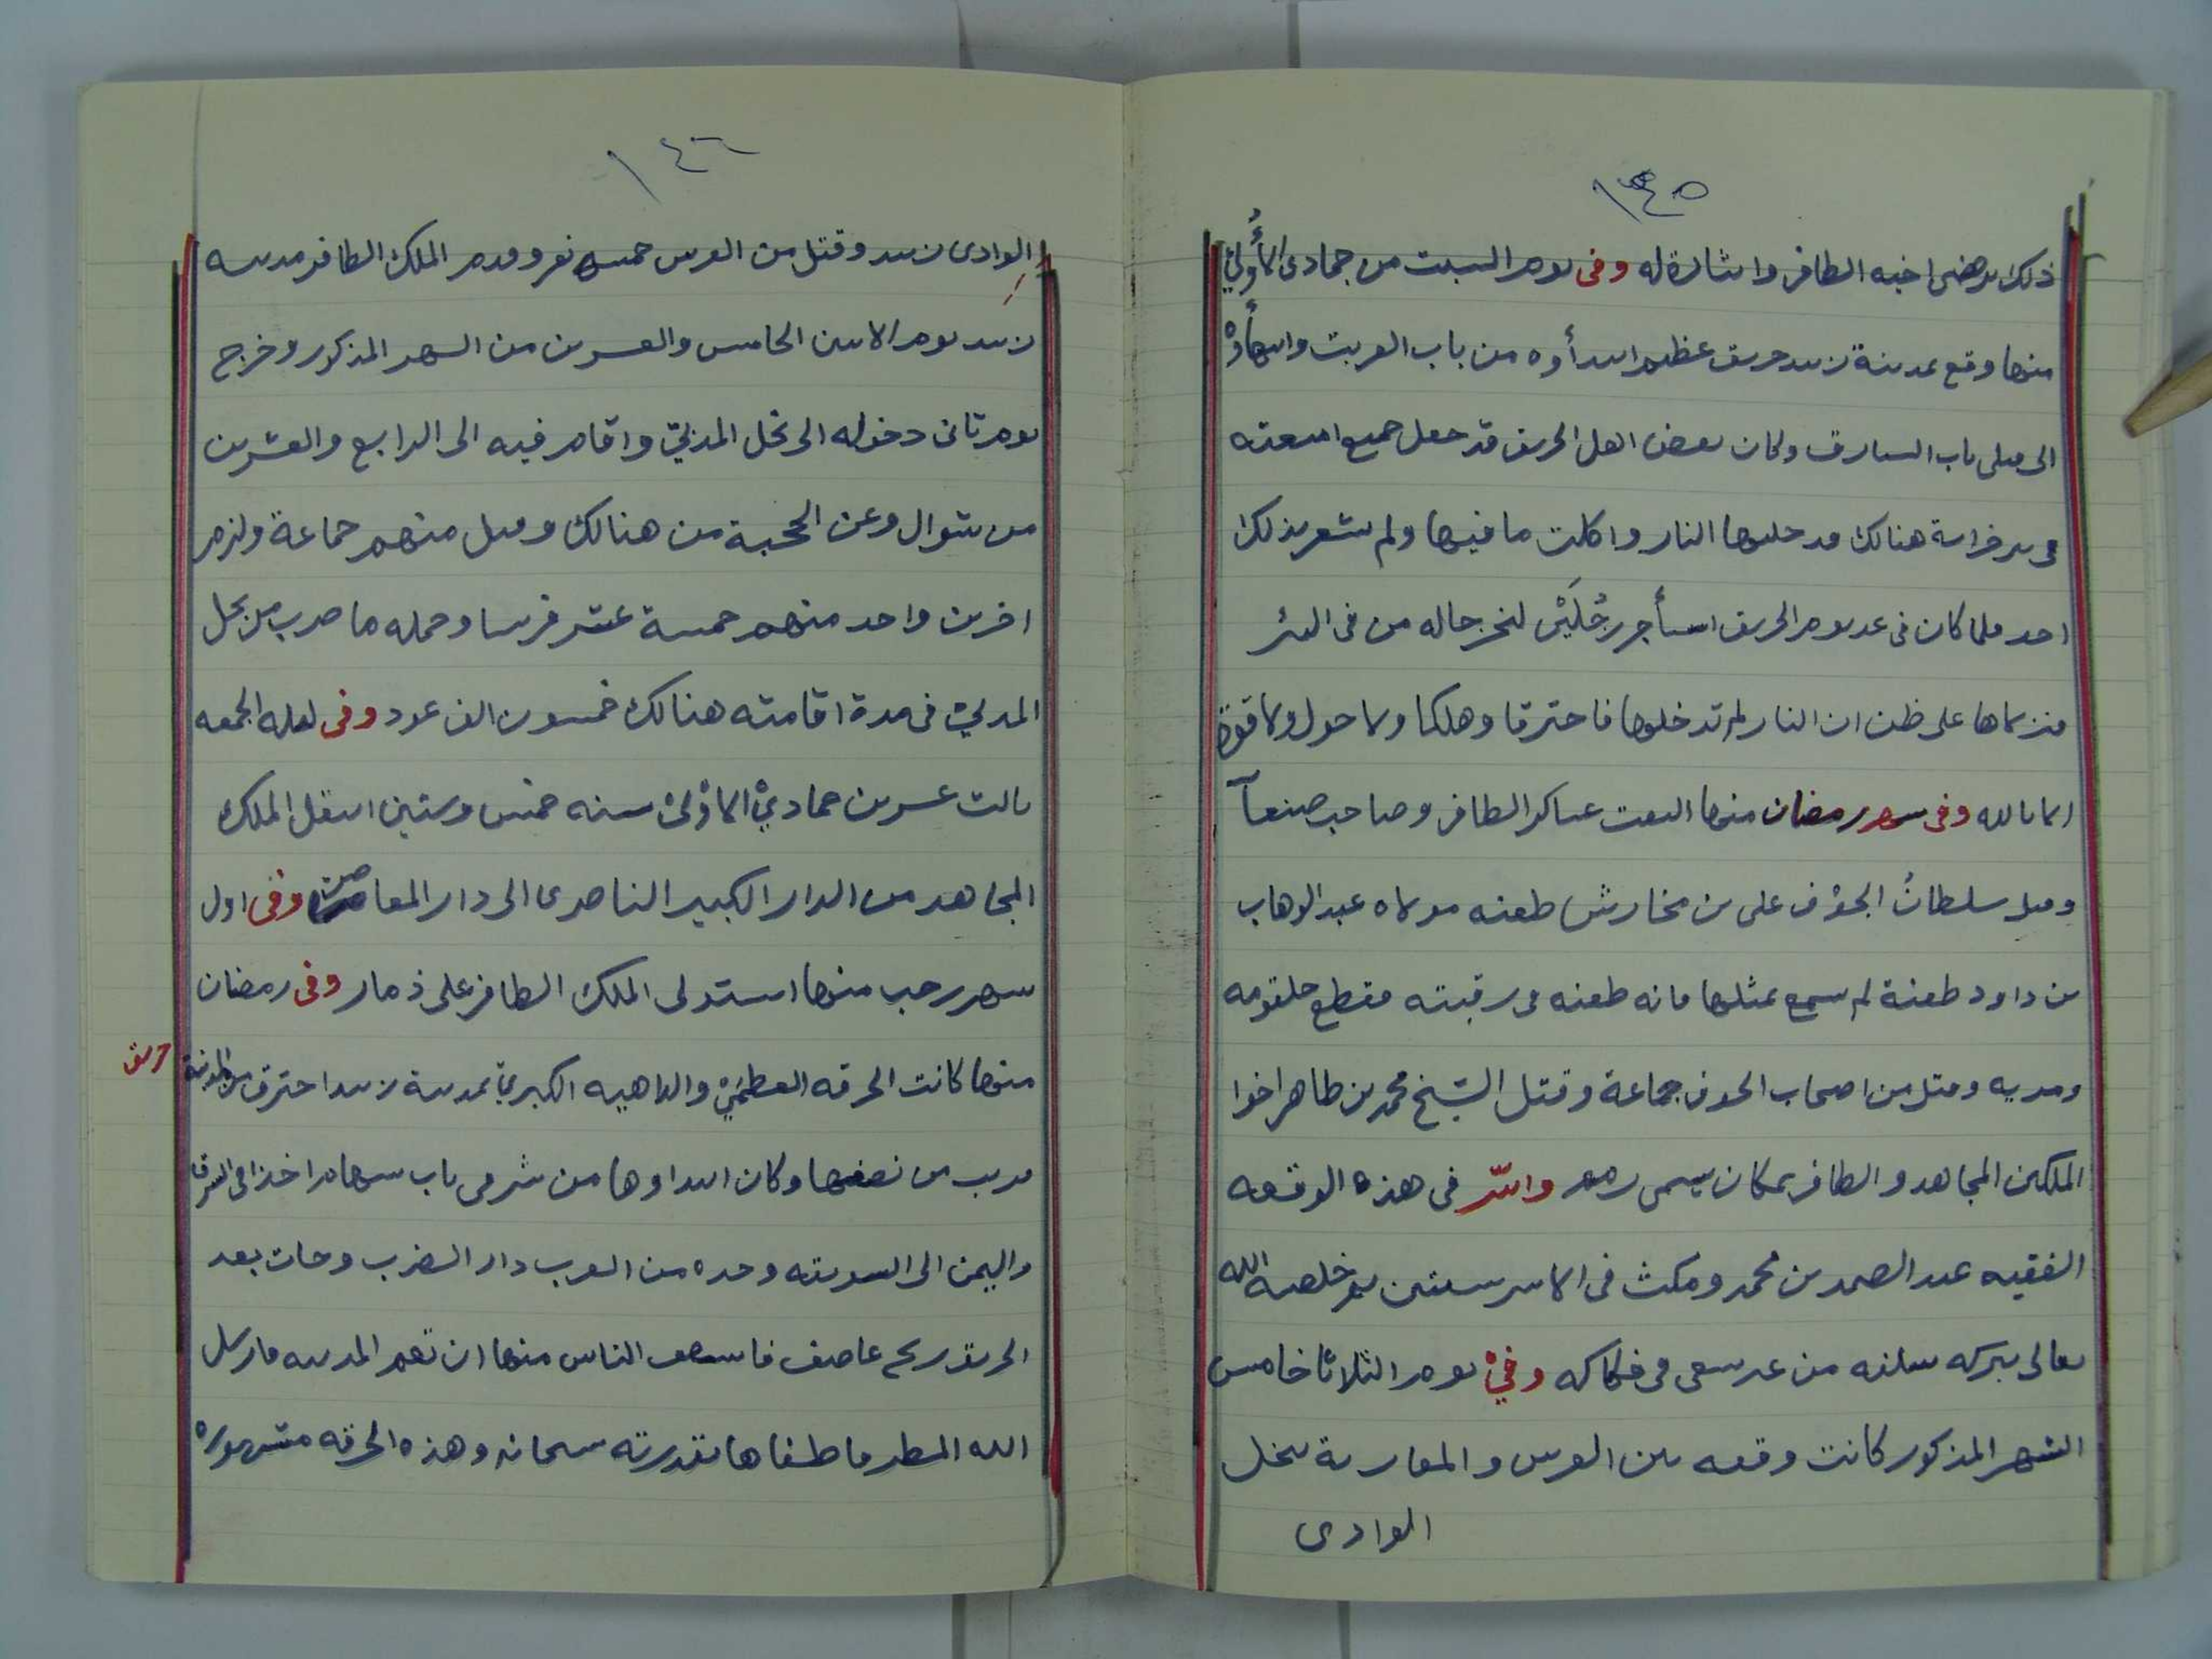 ١٤٥
ذلك برضى اخيه الظافر واشارة له وفى يوم السبت من جمادى الأولى
منها وقع بمدينة زبيد حريق عظيم ابتدأوه من باب الغربت وانتهاؤه
الى قبلى باب الشبارق وكان بعض اهل الحريق قد جعل جميع امتعته
فى بير خرابة هنالك فدخلتها النار واكلت ما فيها ولم يشعر بذلك
احد فلما كان فى غد يوم الحريق استأجر رجلين لتخرجا له من فى البئر
فنزلاها على ظن ان النار لم تدخلها فاحترقا وهلكا ولا حول ولا قوة
الا بالله وفى شهر رمضان منها التقت عساكر الظافر وصاحب صنعآ
وقتل سلطان الجوف على بن مخارش طعنه مولاه عبد الوهاب
بن داود طعنة لم يسمع بمثلها فانه طعنه فى رقبته فقطع حلقومه
ومريه وقتل من اصحاب الجوف جماعة وقتل الشيخ محمد بن طاهر اخوا
الملكين المجاهد والظافر بمكان يسمى واسر فى هذه الوقعه
الفقيه عبد الصمد بن محمد ومكث فى الاسر سنتين ثم خلصه الله
تعالى ببركه سلفه من غير سعى فى فكاكه وفي يوم الثلاثا خامس
الشهر المذكور كانت وقعه بين القرشيين والمعازبة بنخل
الوادى
١٤٦
الوادى زبيد وقتل من خمسه نفر وقدم الملك الظافر مدينه
زبيد يوم الاثنين الخامس والعشرين من الشهر المذكور وخرج
يوم ثانى دخوله الى نخل المدبي واقام فيه الى الرابع والعشرين
من شوال وغزى من هنالك وقتل منهم جماعة ولزم
اخرين واحد منهم خمسة عشر فرسا وجمله ما ضرب من نخل
المدبي فى مدة اقامته هنالك خمسون الف عود وفى ليله الجمعه
ثالث عشرين جمادي الاولى سنه خمس وستين انتقل الملك
المجاهد من الدار الكبير الناصرى الى دار المعاصر وفى اول
شهر رجب منها استولى الملك الظافر على ذمار وفى رمضان
منها كانت الحرقه العظمي والداهيه الكبرى بمدينة زبيد احترق من المدينة
حريق
قريب من نصفها وكان ابتداوها من شرقى باب سهام اخذا فى الشرق
واليمن الى السويقه وحده من الغرب دار الضرب وجات بعد
الحريق ريح عاصف فاستعف الناس منها ان تعم المدينه فارسل
الله المطر فاطفاها بقدرته سبحانه وهذه الحرقه مشهوره